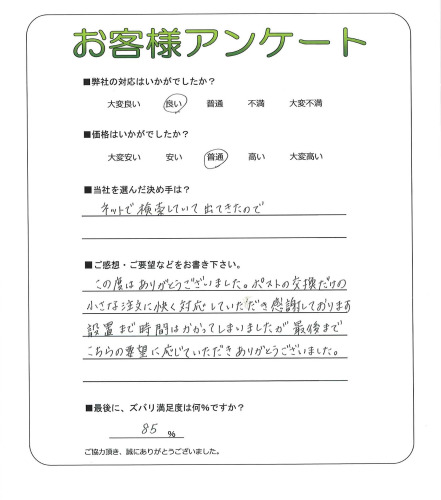 お客様アンケート
■弊社の対応はいかがでしたか？
大変良い 良い 普通 不満 大変不満
■価格はいかがでしたか？
大変安い 安い 普通 高い 大変高い
■当社を選んだ決め手は？
ネットで検索していて出てきたので
■ご感想・ご要望などをお書き下さい。
この度はありがとうございました。ポストの交換だけの
小さな注文に快く対応していただき感謝しております
設置まで時間はかかってしまいましたが最後まで
こちらの要望に応じていただきありがとうございました。
■最後に、ズバリ満足度は何％ですか？
85 ％
ご協力頂き、誠にありがとうございました。